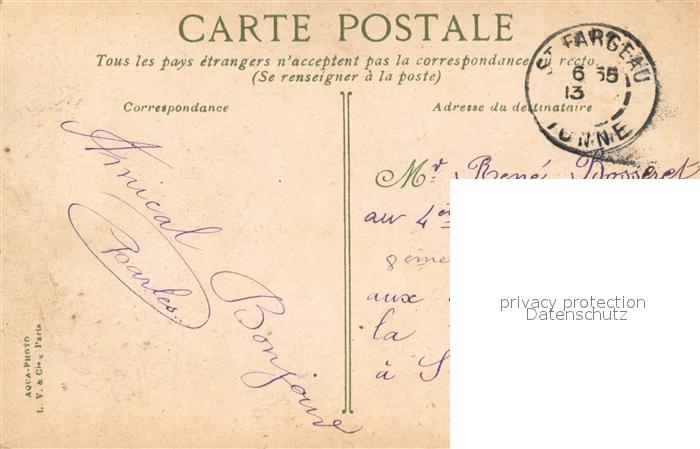 CARTE POSTALE
Tous les pays étrangers n'acceptent pas la correspondance au recto.
(Se renseigner à la poste)
Correspondance
Adresse du destinataire
ST FARGEAU
6 55
13
YONNE
Amical
Bonjour
Charles
Mr René
au 4è
8ème
aux
la
à S
privacy protection
Datenschutz
AQUA-PHOTO
L. V. & Cie, Paris